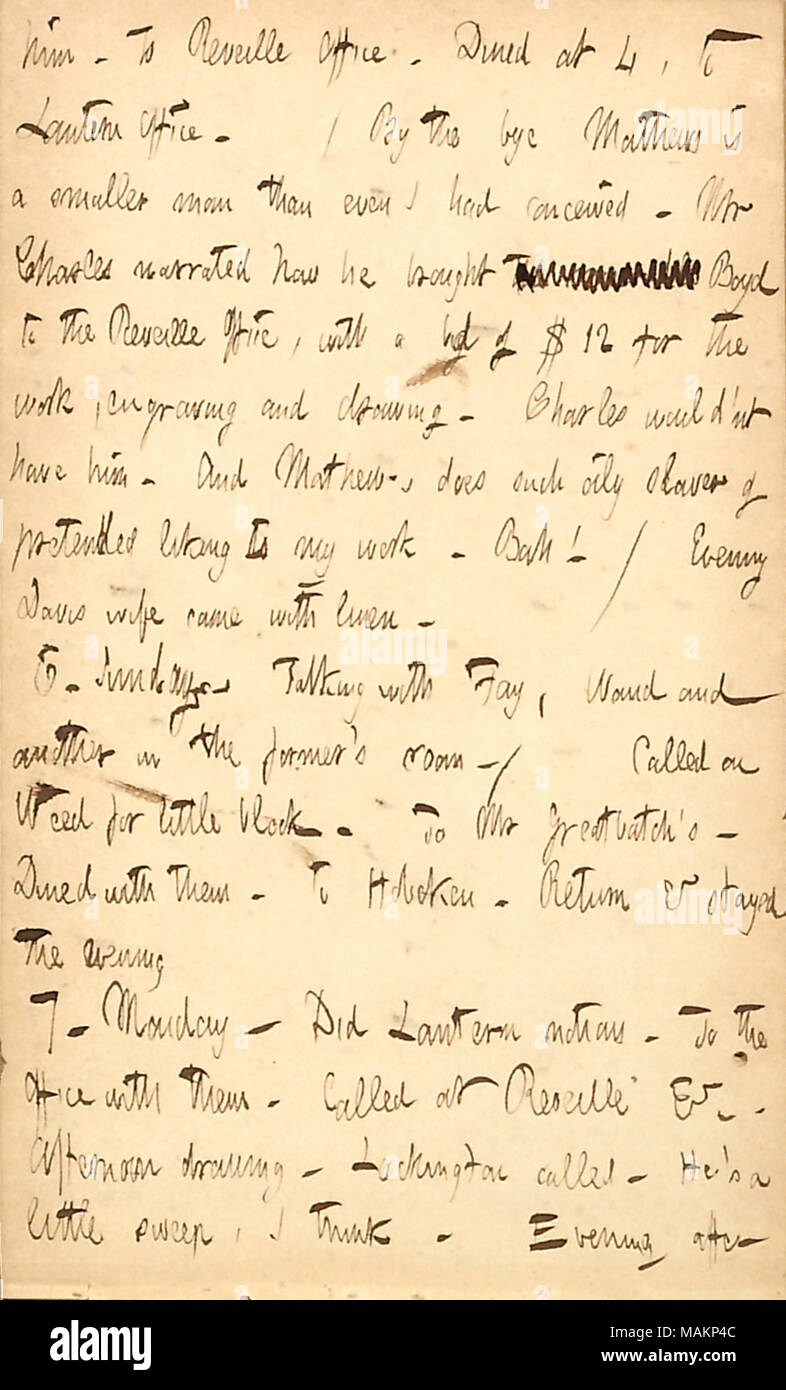 him - To Reveille Office - Dined at 4, to
Lantern Office - / By the bye Mathews is
a smaller man than even I had conceived - Mr
Charles narrated how he brought Boyd
to the Reveille Office, with a bid of $12 for the
work, engraving and drawing - Charles would'nt
have him - And Mathews does such oily slaver of
pretended liking to my work - Bah! - / Evening
Davis wife came with linen -
6 - Sunday - Talking with Fay, Waud and
another in the former's room - / Called on
Weed for little block - To Mr Greatbatch's -
Dined with them - To Hoboken - Return & stayed
the evening
7 - Monday - Did Lantern notions - To the
Office with them - Called at Reveille &c -
Afternoon drawing - Lockington called - He's a
little sweep, I think - Evening after
alamy
Image ID: MAKP4C
www.alamy.com